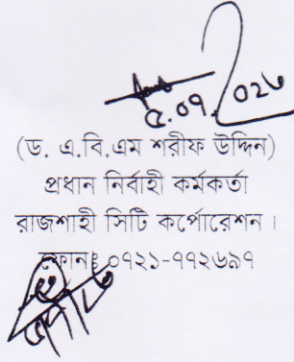 ৫.০৭.২০২৩
(ড. এ.বি.এম শরীফ উদ্দিন)
প্রধান নির্বাহী কর্মকর্তা
রাজশাহী সিটি কর্পোরেশন।
ফোনঃ ০৭২১-৭৭২৬৯৭